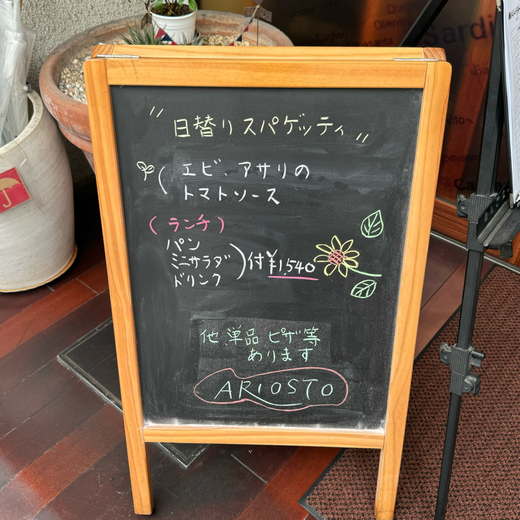 "日替りスパゲッティ"
エビ、アサリの
トマトソース
(ランチ)
パン
ミニサラダ
ドリンク
付¥1,540
他単品ピザ等
あります
ARIOSTO